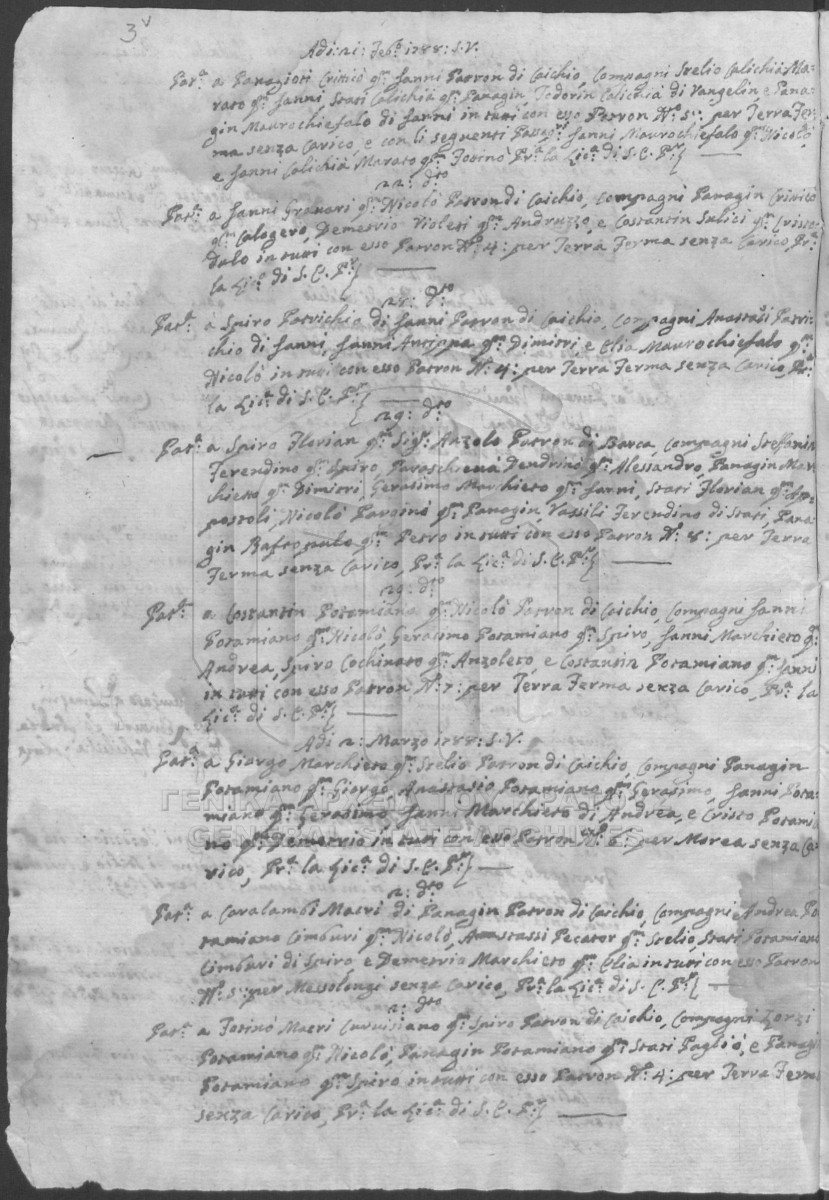 3v
Adi: 21: Febro 1788: S.V.
Pate a Panagioti Criticò qm Janni Patron di Caichio, Compagni Stelio Calichià Ma-
rato qm Janni, Stati Calichià qm Panagin, Todorin Calichià di Vangelin, e Pana-
gin Maurochiefalo di Janni in tutti con esso Patron No 5: per Terra Fer-
ma senza Carico, e con li seguenti Passri Janni Maurochiefalo qm Nicolò,
e Janni Calichià Marato qm Fotinò Pra la Lica di S. E. Pr
22: dto
Pate a Janni Granari qm Nicolò Patron di Caichio, Compagni Panagin Criticò
qm Calogero, Demetrio Violeti qm Andruzzo, e Costantin Sulici qm Cristo-
dulo in tutti con esso Patron No 4: per Terra Ferma senza Carico, Pra
la Lica di S. E. Pr
25: dto
Pate a Spiro Patrichio di Janni Patron di Caichio, Compagni Anastasi Patri-
chio di Janni, Janni Antippa qm Dimitri, e Elia Maurochiefalo qm
Nicolò in tutti con esso Patron No 4: per Terra Ferma senza Carico, Pra
la Lica di S. E. Pr
29: dto
Pate a Spiro Florian qm Sigr Anzolo Patron di Barca, Compagni Steffanin
Ferendino qm Spiro, Paraschevà Dendrinò qm Alessandro, Panagin Mar-
chieto qm Dimitri, Gerasimo Marchieto qm Janni, Stati Florian qm App-
postoli, Nicolò Paroinò qm Panagin, Vassili Ferendino di Stati, Pana-
gin Raftopulo qm Petro in tutti con esso Patron No 8: per Terra
Ferma senza Carico, Pra la Lica di S. E. Pr
29: dto
Pate a Costantin Potamiano qm Nicolò Patron di Caichio, Compagni Janni
Potamiano qm Nicolò, Gerasimo Potamiano qm Spiro, Janni Marchieto qm
Andrea, Spiro Cochinato qm Anzoleto, e Costantin Potamiano qm Janni
in tutti con esso Patron No 7: per Terra Ferma senza Carico, Pra la
Lica di S. E. Pr
Adi 2: Marzo 1788: S.V.
Pate a Giorgo Marchieto qm Stelio Patron di Caichio, Compagni Panagin
Potamiano qm Giorgo, Anastasio Potamiano qm Gerasimo, Janni Pota-
miano qm Gerasimo, Janni Marchieto di Andrea, e Cristo Potami-
ΓΕΝΙΚΑ ΑΡΧΕΙΑ ΤΟΥ ΚΡΑΤΟΥΣ
GENERAL STATE ARCHIVES
no qm Demetrio in tutti con esso Patron No 6: per Morea senza Ca-
rico, Pra la Lica di S. E. Pr
2: dto
Pate a Caralambi Macrì di Panagin Patron di Caichio, Compagni Andrea Po-
tamiano Cimburi qm Nicolò, Anastassi Pecator qm Stelio, Stati Potamiano
Cimburi di Spiro, e Demetrio Marchieto qm Elia in tutti con esso Patron
No 5: per Messolongi senza Carico, Pra la Lica di S. E. Pr
2: dto
Pate a Fotinò Macrì qm Spiro Patron di Caichio, Compagni Zorzi
Potamiano qm Nicolò, Panagin Potamiano qm Stati Pagliò, e Panagi
Potamiano qm Spiro in tutti con esso Patron No 4: per Terra Ferma
senza Carico, Pra la Lica di S. E. Pr